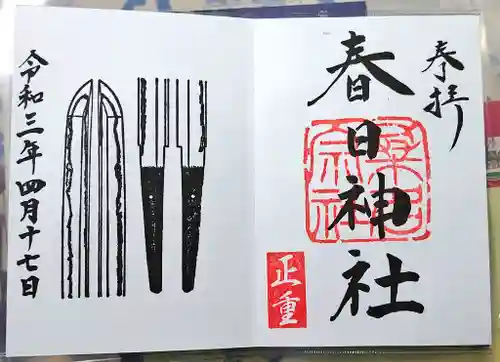 奉拝
春日神社
桑名
宗社
正重
令和三年四月十七日